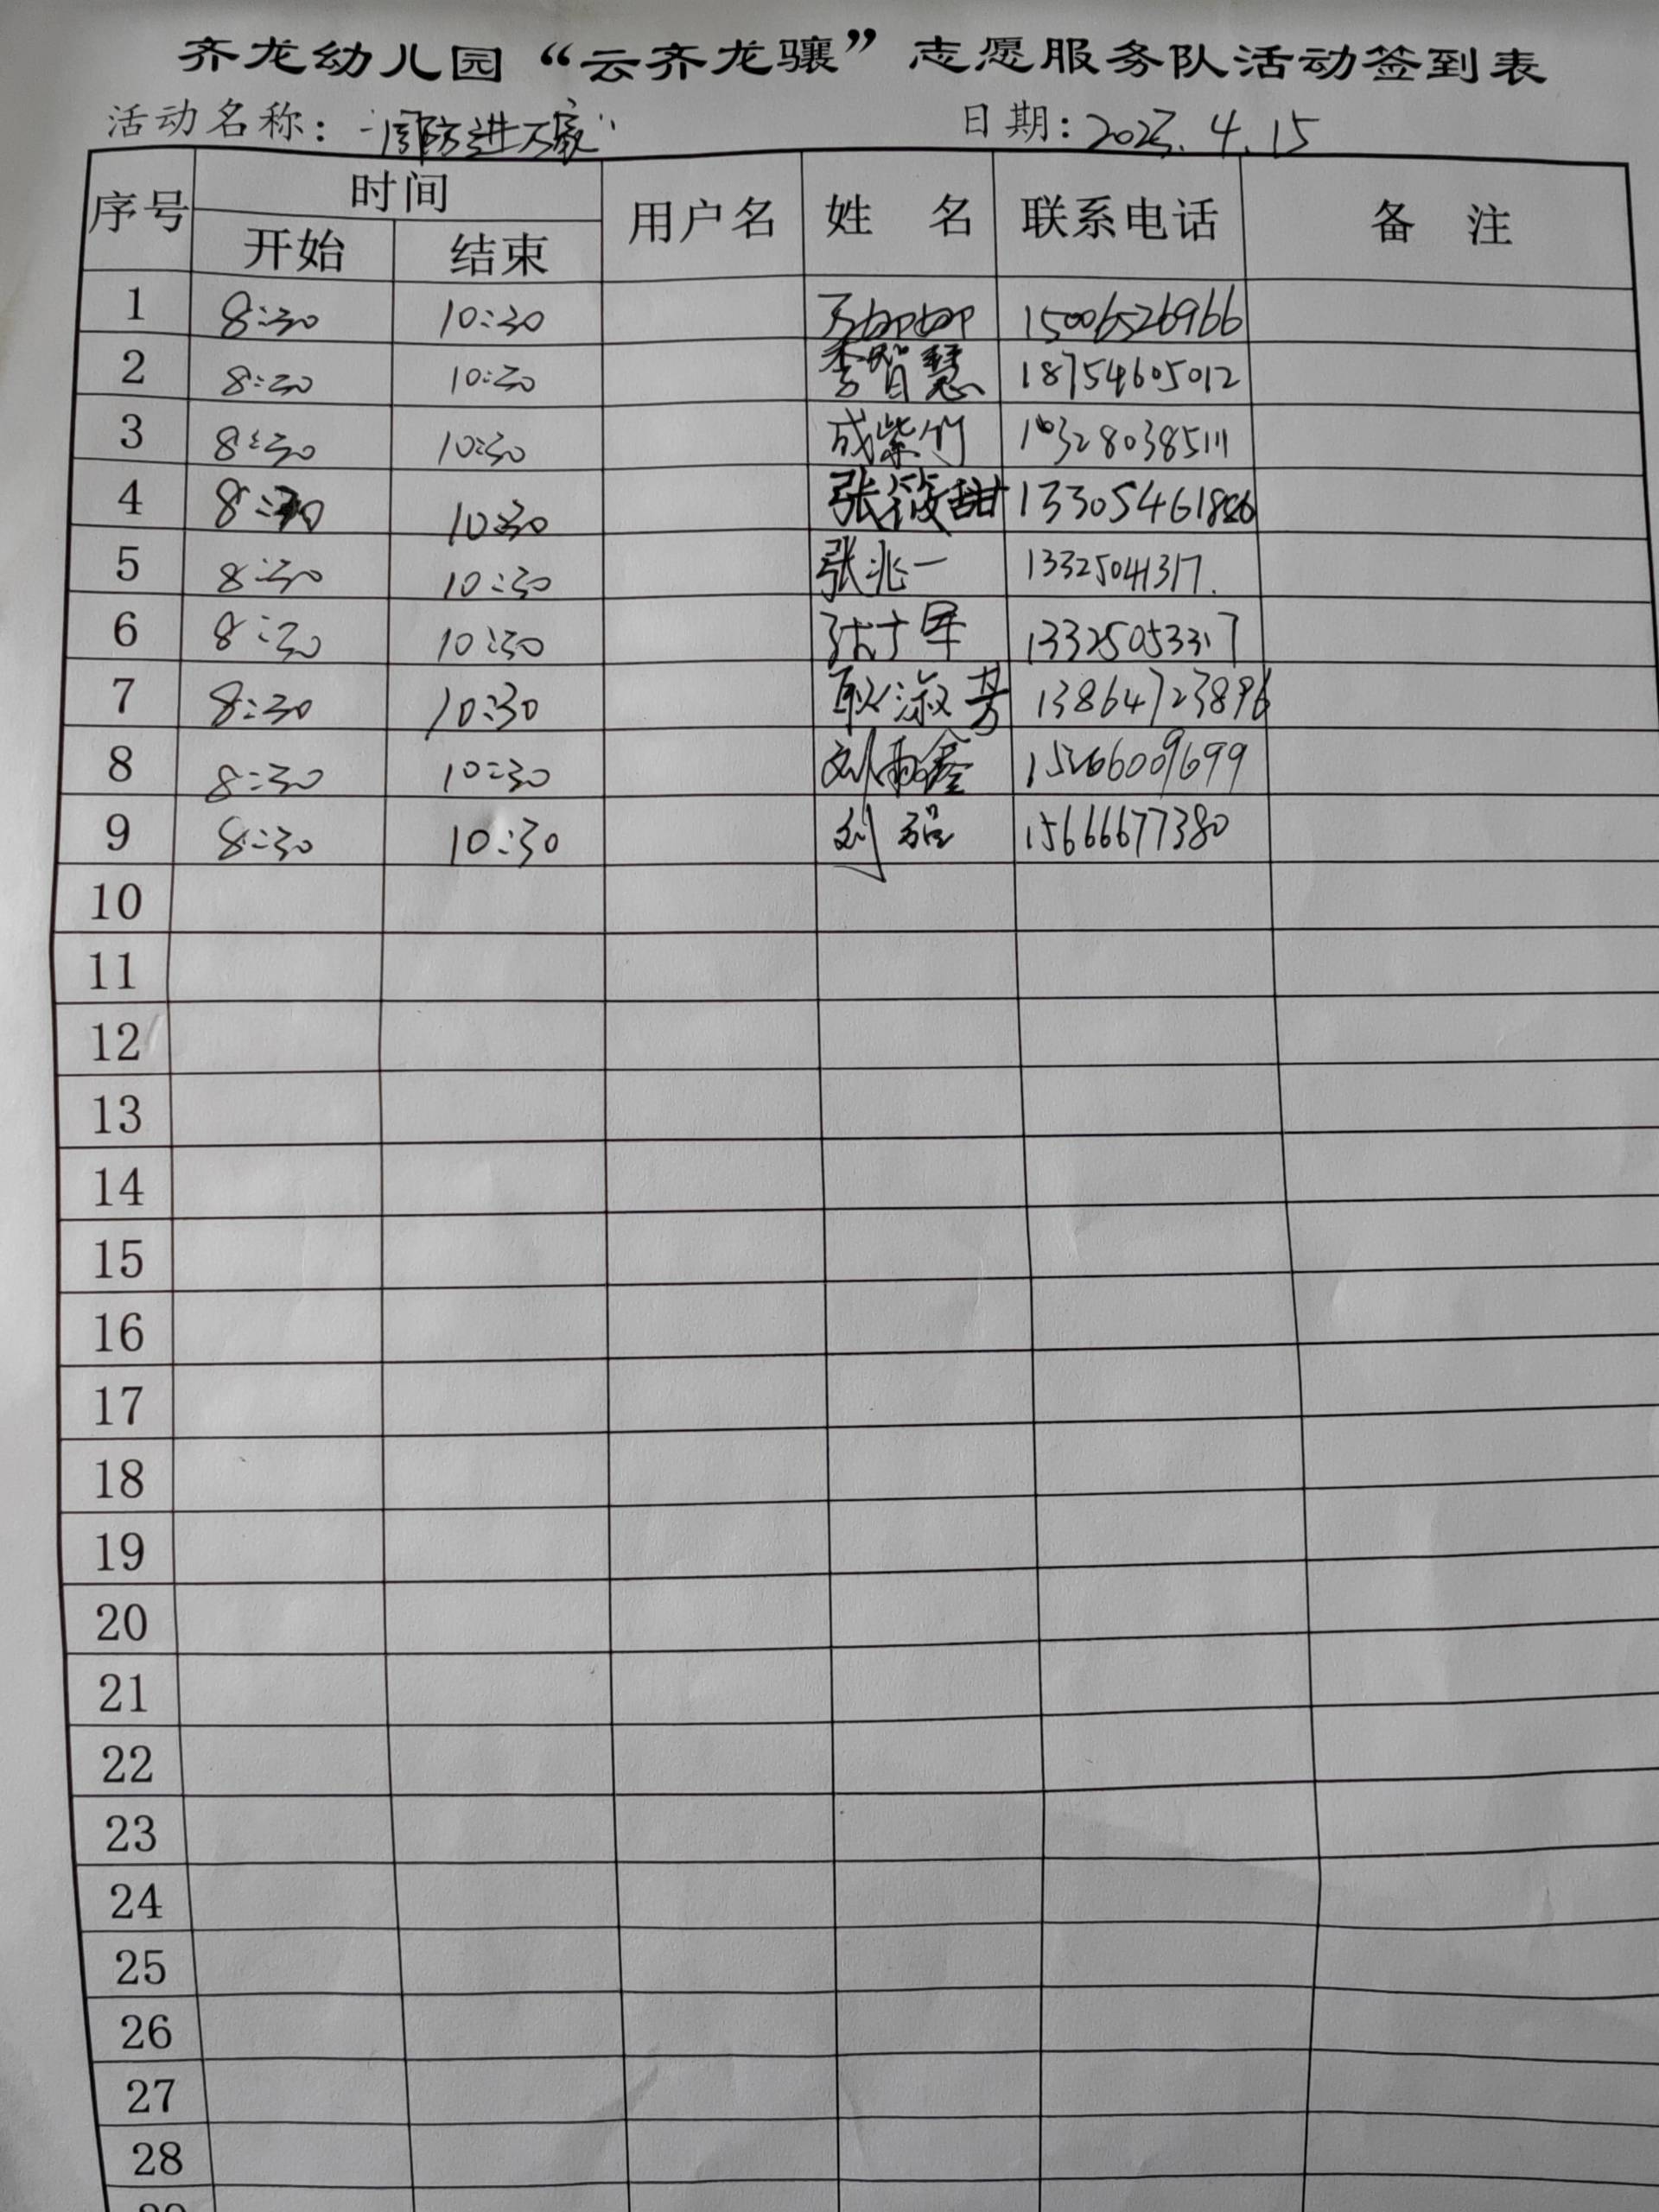 齐龙幼儿园“云齐龙骧”志愿服务队活动签到表
活动名称：“国防进万家” 日期：2023.4.15
序号 时间 用户名 姓 名 联系电话 备 注
开始 结束
1 8:30 10:30 15006526966
2 8:30 10:30 李智慧 18754605012
3 8:30 10:30 成紫竹
4 8:30 10:30 张筱甜
5 8:30 10:30 张兆一 13325041317
6 8:30 10:30 13325053317
7 8:30 10:30 耿淑芳 13864723896
8 8:30 10:30 刘雨鑫 15266009699
9 8:30 10:30 刘 15666677380
10
11
12
13
14
15
16
17
18
19
20
21
22
23
24
25
26
27
28